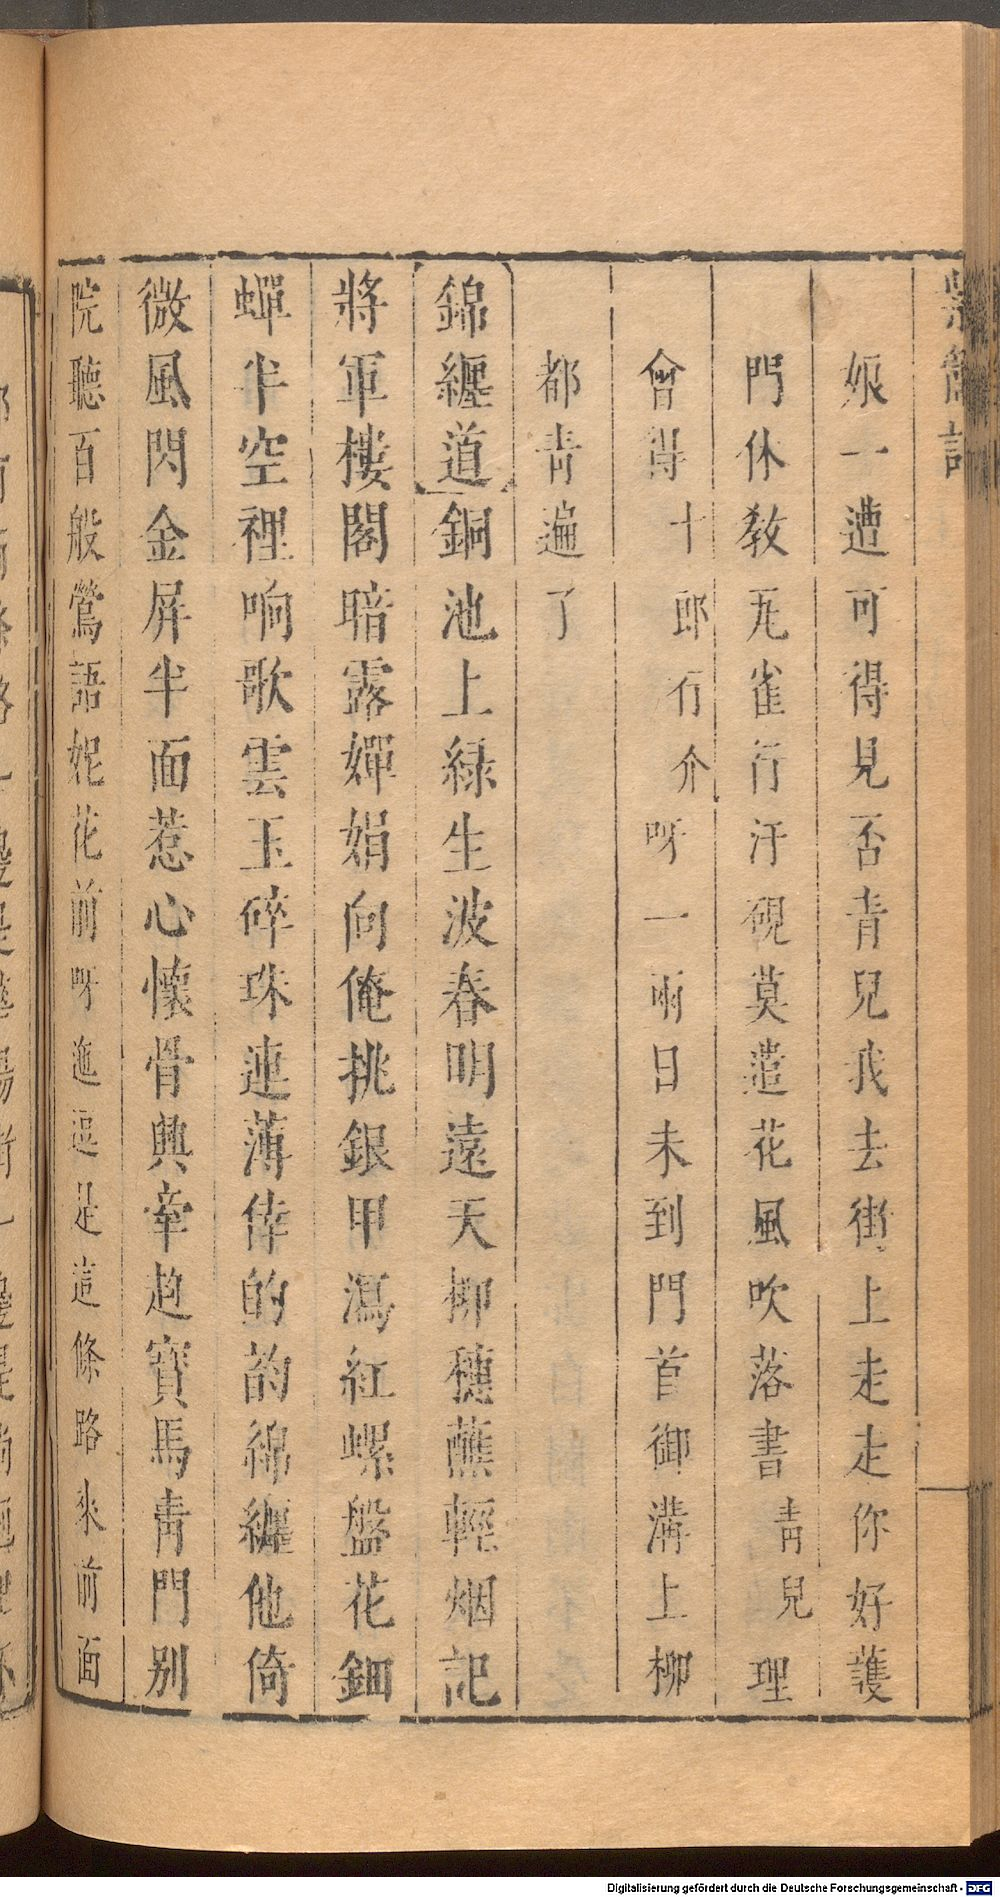 紫簫記
娘一遭可得見否青兒我去街上走走你好護
門休教瓦雀行汙硯莫遣花風吹落書青兒理
會得十郎行介呀一兩日未到門首御溝上柳
都青遍了
錦纏道銅池上緑生波春明遠天柳穗蘸輕烟記
將軍樓閣暗露嬋娟向俺挑銀甲瀉紅螺盤花鈿
蟬半空裡响歌雲玉碎珠連薄倖的的綿纏他倚
微風閃金屏半面惹心懷骨興牽趂寶馬靑門別
院聽百般鶯語妮花前呀迤逗是這條路來前面
Digitalisierung gefördert durch die Deutsche Forschungsgemeinschaft - DFG